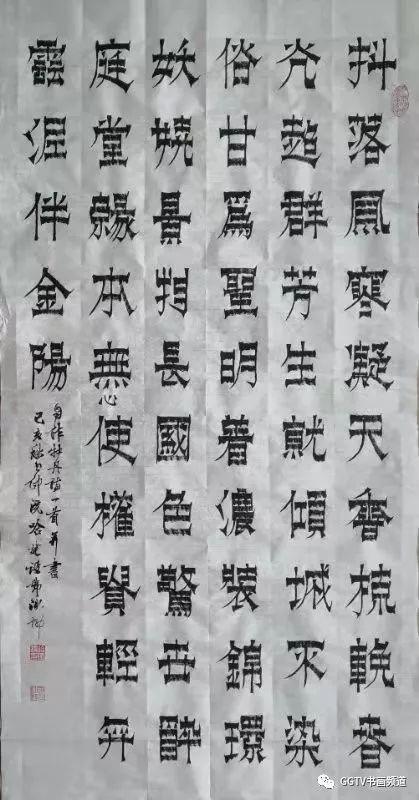 抖落風寒凝天香梳晚春
光超群芳生就傾城不染
俗甘爲聖明着濃裝錦環
妖嬈景韵長國色驚世醉
庭堂緣本無心使權貴輕弄
雲涯伴金陽
自作牡丹詩一首并書
己亥
GGTV书画频道